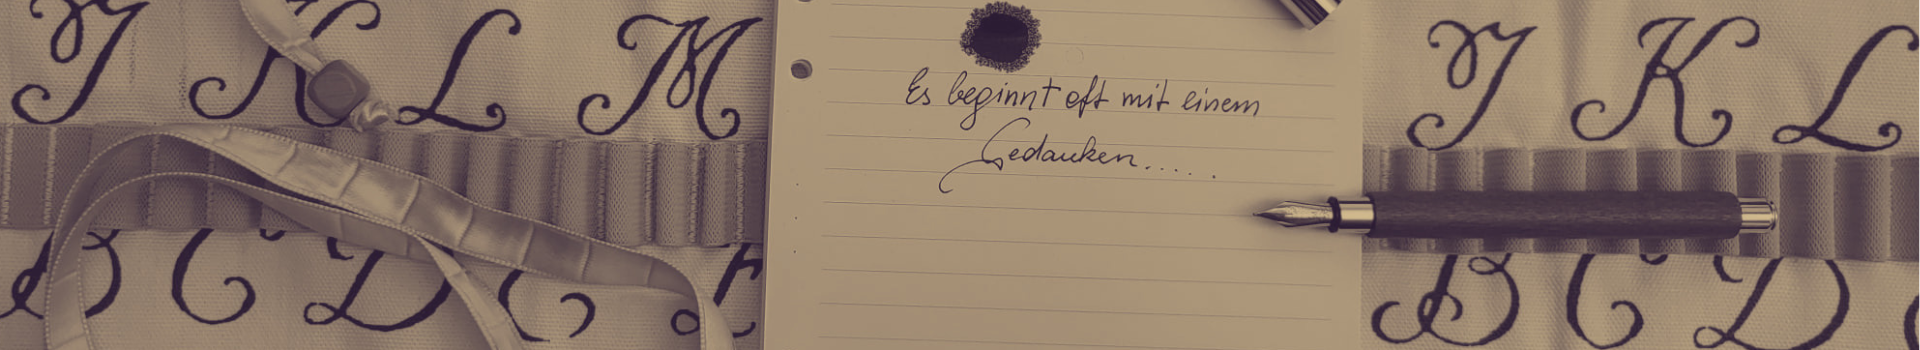 J K L M
B C D
Es beginnt oft mit einem
Gedanken.....
J K L
B C D